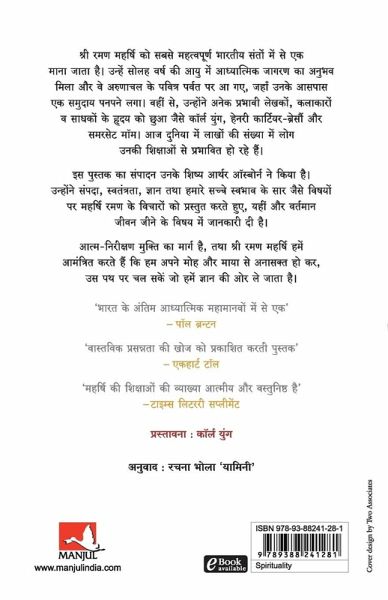 श्री रमण महर्षि को सबसे महत्वपूर्ण भारतीय संतों में से एक
माना जाता है। उन्हें सोलह वर्ष की आयु में आध्यात्मिक जागरण का अनुभव
मिला और वे अरुणाचल के पवित्र पर्वत पर आ गए, जहाँ उनके आसपास
एक समुदाय पनपने लगा। वहीं से, उन्होंने अनेक प्रभावी लेखकों, कलाकारों
व साधकों के हृदय को छुआ जैसे कॉर्ल युंग, हेनरी कार्टियर-ब्रेसौं और
समरसेट मॉम। आज दुनिया में लाखों की संख्या में लोग
उनकी शिक्षाओं से प्रभावित हो रहे हैं।
इस पुस्तक का संपादन उनके शिष्य आर्थर ऑस्बोर्न ने किया है।
उन्होंने संपदा, स्वतंत्रता, ज्ञान तथा हमारे सच्चे स्वभाव के सार जैसे विषयों
पर महर्षि रमण के विचारों को प्रस्तुत करते हुए, यहीं और वर्तमान
जीवन जीने के विषय में जानकारी दी है।
आत्म-निरीक्षण मुक्ति का मार्ग है, तथा श्री रमण महर्षि हमें
आमंत्रित करते हैं कि हम अपने मोह और माया से अनासक्त हो कर,
उस पथ पर चल सकें जो हमें ज्ञान की ओर ले जाता है।
'भारत के अंतिम आध्यात्मिक महामानवों में से एक'
– पॉल ब्रन्टन
'वास्तविक प्रसन्नता की खोज को प्रकाशित करती पुस्तक'
– एकहार्ट टॉल
'महर्षि की शिक्षाओं की व्याख्या आत्मीय और वस्तुनिष्ठ है'
– टाइम्स लिटररी सप्लीमेंट
प्रस्तावना : कॉर्ल युंग
अनुवाद : रचना भोला 'यामिनी'
MANJUL
www.manjulindia.com
eBook
available
ISBN 978-93-88241-28-1
9 789388 241281
Spirituality
Cover design by Two Associates